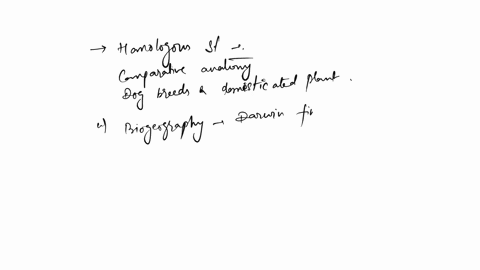 → Homologous St →.
Comparative anatomy
Dog breeds & domesticated plant.
4) Biogeography → Darwin fi